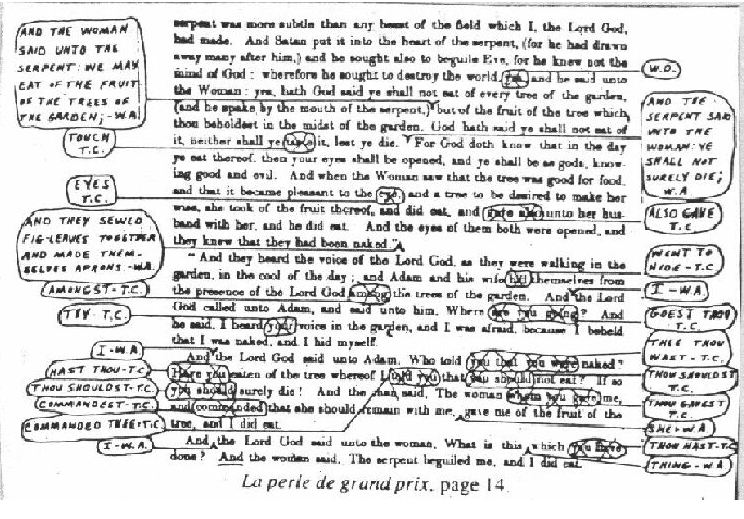 AND THE WOMAN
SAID UNTO THE
SERPENT: WE MAY
EAT OF THE FRUIT
OF THE TREES OF
THE GARDEN; - W.A.
TOUCH
T.C.
EYES
T.C.
AND THEY SEWED
FIG-LEAVES TOGETHER
AND MADE THEM-
SELVES APRONS - W.A.
AMONGST - T.C.
THY T.C.
I - W.A
HAST THOU - T.C
THOU SHOULDST - T.C.
COMMANDEST - T.C.
COMMANDED THEE - T.C
I - W.A.
serpent was more subtle than any beast of the field which I, the Lord God,
had made. And Satan put it into the heart of the serpent, (for he had drawn
away many after him,) and he sought also to beguile Eve, for he knew not the
mind of God: wherefore he sought to destroy the world, and he said unto
the Woman: yea, hath God said ye shall not eat of every tree of the garden,
(and he spake by the mouth of the serpent,) but of the fruit of the tree which
thou beholdest in the midst of the garden. God hath said ye shall not eat of
it, neither shall ye it, lest ye die. For God doth know that in the day
ye eat thereof, then your eyes shall be opened, and ye shall be as gods, know-
ing good and evil. And when the Woman saw that the tree was good for food,
and that it became pleasant to the eye, and a tree to be desired to make her
wise, she took of the fruit thereof, and did eat, and gave also unto her hus-
band with her, and he did eat. And the eyes of them both were opened, and
they knew that they had been naked.
And they heard the voice of the Lord God, as they were walking in the
garden, in the cool of the day; and Adam and his wife hid themselves from
the presence of the Lord God among the trees of the garden. And the Lord
God called unto Adam, and said unto him, Where are you going? And
he said, I heard your voice in the garden, and I was afraid, because I beheld
that I was naked, and I hid myself.
And the Lord God said unto Adam, Who told you that you were naked?
Have you eaten of the tree whereof I told you that you should not eat? If so
you should surely die! And the man said, The woman whom you gave me,
and commanded that she should remain with me, gave me of the fruit of the
tree, and I did eat.
And the Lord God said unto the woman, What is this which you have
done? And the woman said, The serpent beguiled me, and I did eat.
W.O.
AND THE
SERPENT SAID
UNTO THE
WOMAN: YE
SHALL NOT
SURELY DIE;
W.A
ALSO GAVE
T.C
WENT TO
HIDE - T.C
I - W.A
GOEST THOU
T.C.
THEE THOU
WAST - T.C.
THOU SHOULDST
T.C.
THOU GAVEST
T.C.
SHE - W.A
THOU HAST - T.C
THING - W.A
La perle de grand prix, page 14.